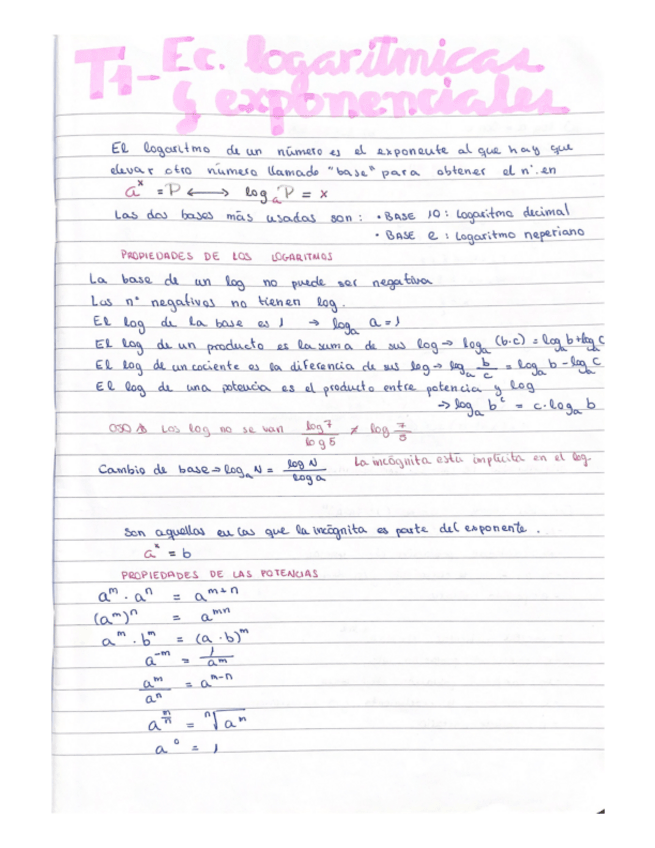 T1- Ec. logarítmicas
y exponenciales
El logaritmo de un número es el exponente al que hay que
elevar otro número llamado "base" para obtener el nº. en
aˣ = P ⟷ logₐ P = x
Las dos bases más usadas son : • BASE 10 : Logaritmo decimal
• BASE e : Logaritmo neperiano
PROPIEDADES DE LOS LOGARITMOS
La base de un log no puede ser negativa
Los nº negativos no tienen log.
El log de la base es 1 → logₐ a = 1
El log de un producto es la suma de sus log → logₐ (b·c) = logₐ b + logₐ c
El log de un cociente es la diferencia de sus log → logₐ b/c = logₐ b - logₐ c
El log de una potencia es el producto entre potencia y log
→ logₐ bᶜ = c · logₐ b
OJO ⚠ Los log no se van log 7 / log 5 ≠ log 7/5
Cambio de base → logₐ N = log N / log a La incógnita está implícita en el log.
Son aquellas en las que la incógnita es parte del exponente .
aˣ = b
PROPIEDADES DE LAS POTENCIAS
aᵐ · aⁿ = aᵐ⁺ⁿ
(aᵐ)ⁿ = aᵐⁿ
aᵐ · bᵐ = (a · b)ᵐ
a⁻ᵐ = 1/aᵐ
aᵐ/aⁿ = aᵐ⁻ⁿ
a^(m/n) = ⁿ√aᵐ
a⁰ = 1